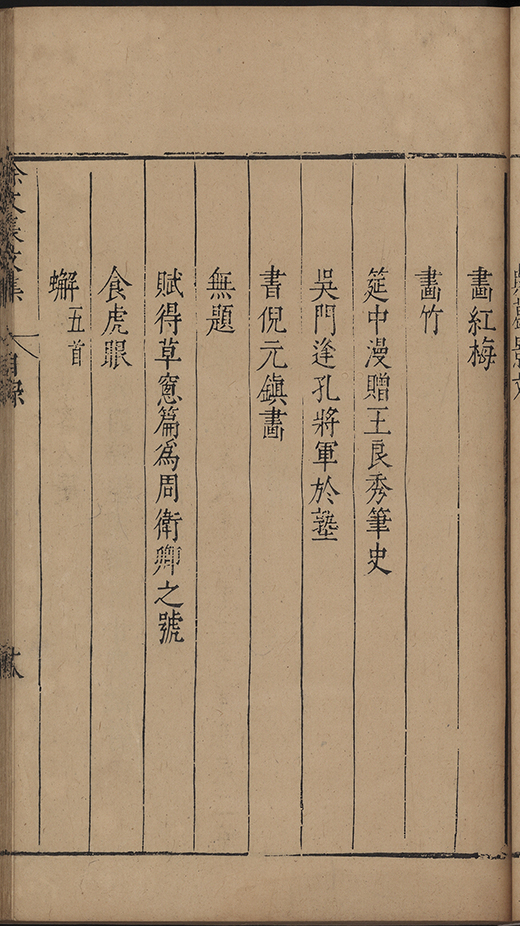 畫紅梅
畫竹
筵中漫贈王良秀筆史
吳門逢孔將軍於塾
書倪元鎮畫
無題
賦得草窻篇為周衛卿之號
食虎眼
蠏五首
徐文長文集 目録